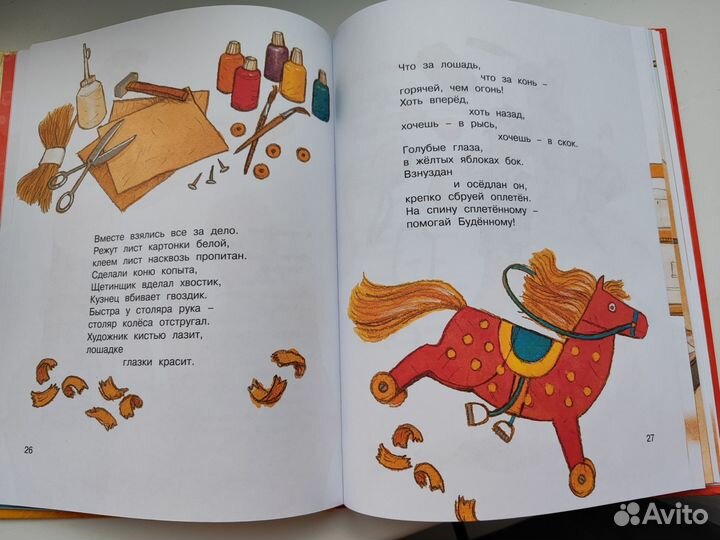 Вместе взялись все за дело.
Режут лист картонки белой,
клеем лист насквозь пропитан.
Сделали коню копыта,
Щетинщик вделал хвостик,
Кузнец вбивает гвоздик.
Быстра у столяра рука –
столяр колёса отстругал.
Художник кистью лазит,
лошадке
глазки красит.
26
Что за лошадь,
что за конь –
горячей, чем огонь!
Хоть вперёд,
хоть назад,
хочешь – в рысь,
хочешь – в скок.
Голубые глаза,
в жёлтых яблоках бок.
Взнуздан
и осёдлан он,
крепко сбруей оплетён.
На спину сплетённому –
помогай Будённому!
27
Avito